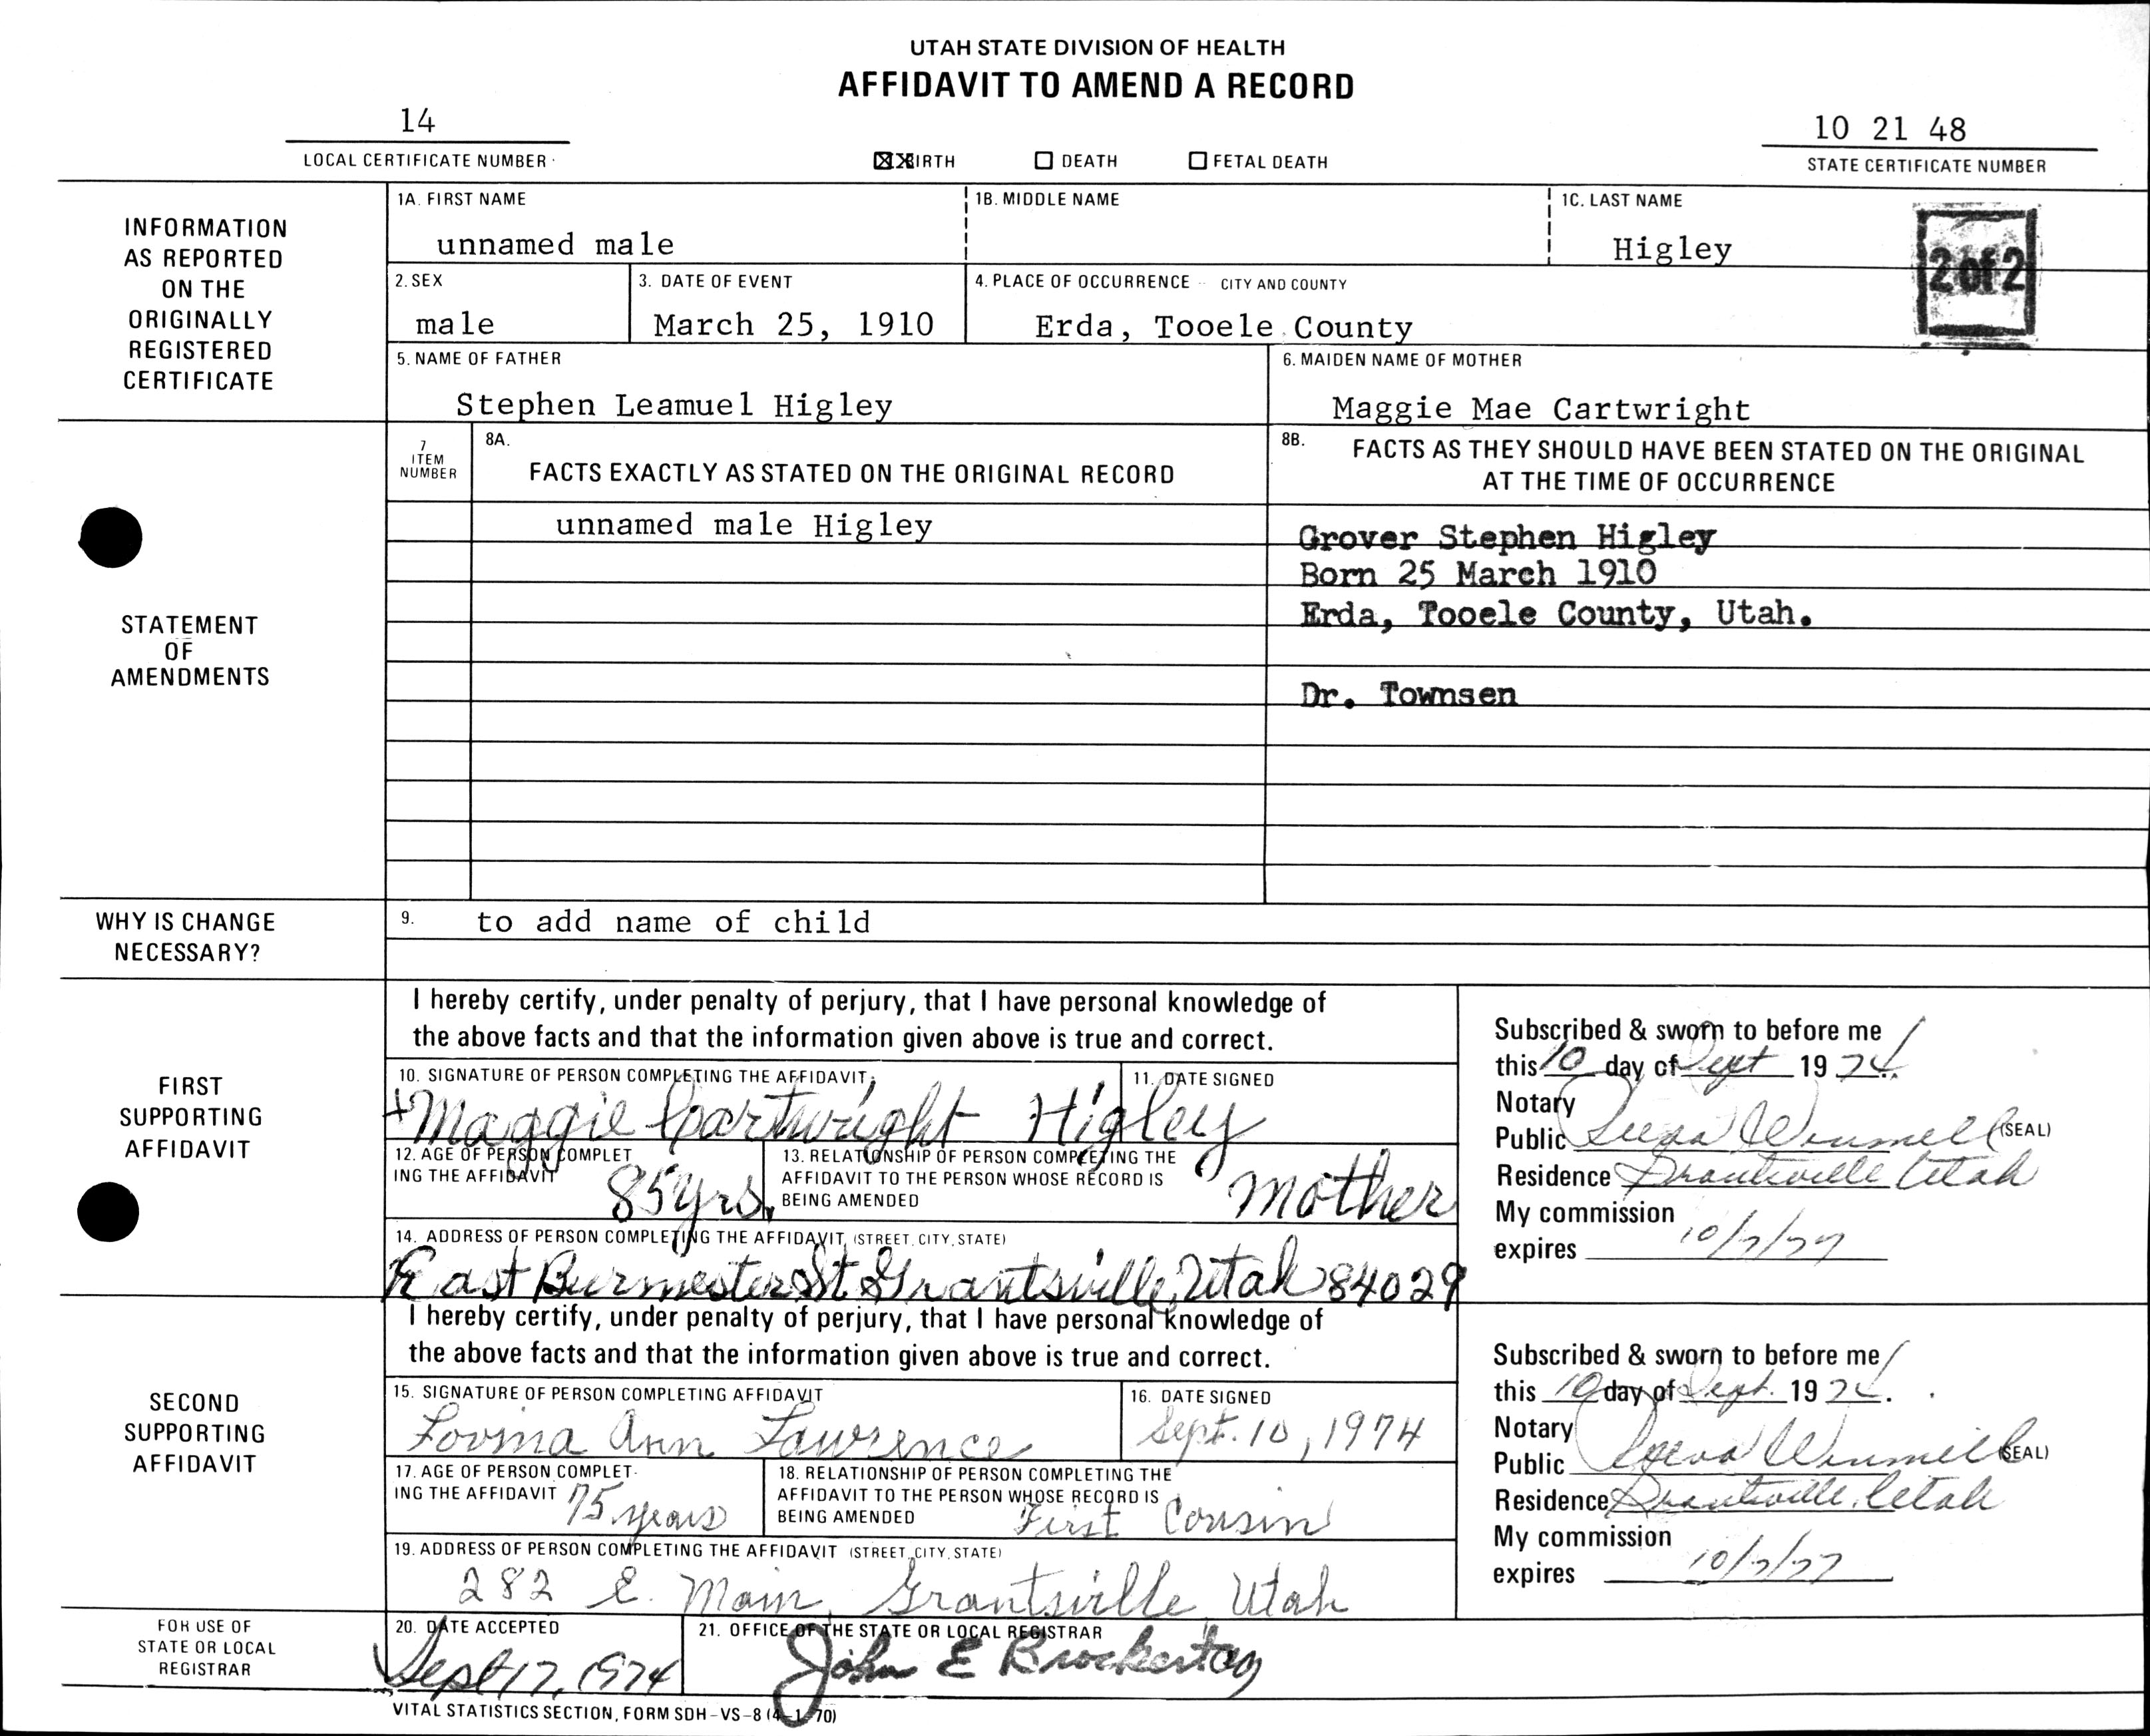 UTAH STATE DIVISION OF HEALTH
AFFIDAVIT TO AMEND A RECORD
14
LOCAL CERTIFICATE NUMBER
☒ BIRTH ☐ DEATH ☐ FETAL DEATH
10 21 48
STATE CERTIFICATE NUMBER
INFORMATION
AS REPORTED
ON THE
ORIGINALLY
REGISTERED
CERTIFICATE
1A. FIRST NAME
unnamed male
1B. MIDDLE NAME
1C. LAST NAME
Higley
2 of 2
2. SEX
male
3. DATE OF EVENT
March 25, 1910
4. PLACE OF OCCURRENCE -- CITY AND COUNTY
Erda, Tooele County
5. NAME OF FATHER
Stephen Leamuel Higley
6. MAIDEN NAME OF MOTHER
Maggie Mae Cartwright
STATEMENT
OF
AMENDMENTS
7
ITEM
NUMBER
8A.
FACTS EXACTLY AS STATED ON THE ORIGINAL RECORD
8B. FACTS AS THEY SHOULD HAVE BEEN STATED ON THE ORIGINAL
AT THE TIME OF OCCURRENCE
unnamed male Higley
Grover Stephen Higley
Born 25 March 1910
Erda, Tooele County, Utah.
Dr. Townsen
WHY IS CHANGE
NECESSARY?
9. to add name of child
FIRST
SUPPORTING
AFFIDAVIT
I hereby certify, under penalty of perjury, that I have personal knowledge of
the above facts and that the information given above is true and correct.
10. SIGNATURE OF PERSON COMPLETING THE AFFIDAVIT
11. DATE SIGNED
Maggie Cartwright Higley
12. AGE OF PERSON COMPLET
ING THE AFFIDAVIT
85 yrs.
13. RELATIONSHIP OF PERSON COMPLETING THE
AFFIDAVIT TO THE PERSON WHOSE RECORD IS
BEING AMENDED
Mother
14. ADDRESS OF PERSON COMPLETING THE AFFIDAVIT (STREET, CITY, STATE)
East Burmester St Grantsville, Utah 84029
Subscribed & sworn to before me
this 10 day of Sept 1974.
Notary
Public (SEAL)
Residence Grantsville Utah
My commission
expires 10/7/77
SECOND
SUPPORTING
AFFIDAVIT
I hereby certify, under penalty of perjury, that I have personal knowledge of
the above facts and that the information given above is true and correct.
15. SIGNATURE OF PERSON COMPLETING AFFIDAVIT
Lovina Ann Lawrence
16. DATE SIGNED
Sept. 10, 1974
17. AGE OF PERSON COMPLET-
ING THE AFFIDAVIT 75 years
18. RELATIONSHIP OF PERSON COMPLETING THE
AFFIDAVIT TO THE PERSON WHOSE RECORD IS
BEING AMENDED First Cousin
19. ADDRESS OF PERSON COMPLETING THE AFFIDAVIT (STREET, CITY, STATE)
282 E. Main, Grantsville Utah
Subscribed & sworn to before me
this 10 day of Sept. 1974.
Notary
Public (SEAL)
Residence Grantsville, Utah
My commission
expires 10/7/77
FOR USE OF
STATE OR LOCAL
REGISTRAR
20. DATE ACCEPTED
Sept 17, 1974
21. OFFICE OF THE STATE OR LOCAL REGISTRAR
John E Brockert
VITAL STATISTICS SECTION, FORM SDH-VS-8 (4-1-70)